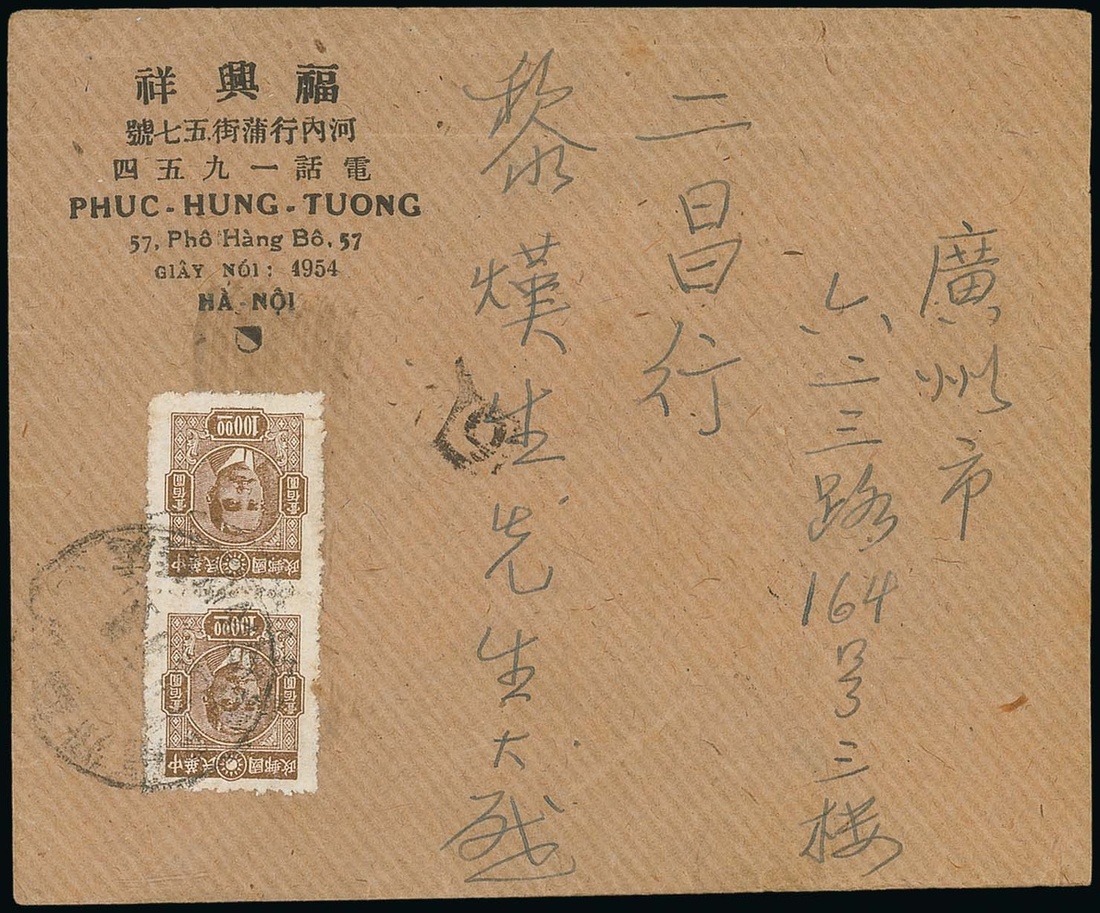 祥興福
號七五街蒲行內河
四五九一話電
PHUC - HUNG - TUONG
57, Phô Hàng Bô, 57
GIÂY NÓI : 1954
HÀ - NỘI
廣州市
六二三路164号三楼
二昌行
黎熯生先生大啟
100.00
壹佰圓 壹佰圓
政郵國民華中
100.00
壹佰圓 壹佰圓
政郵國民華中